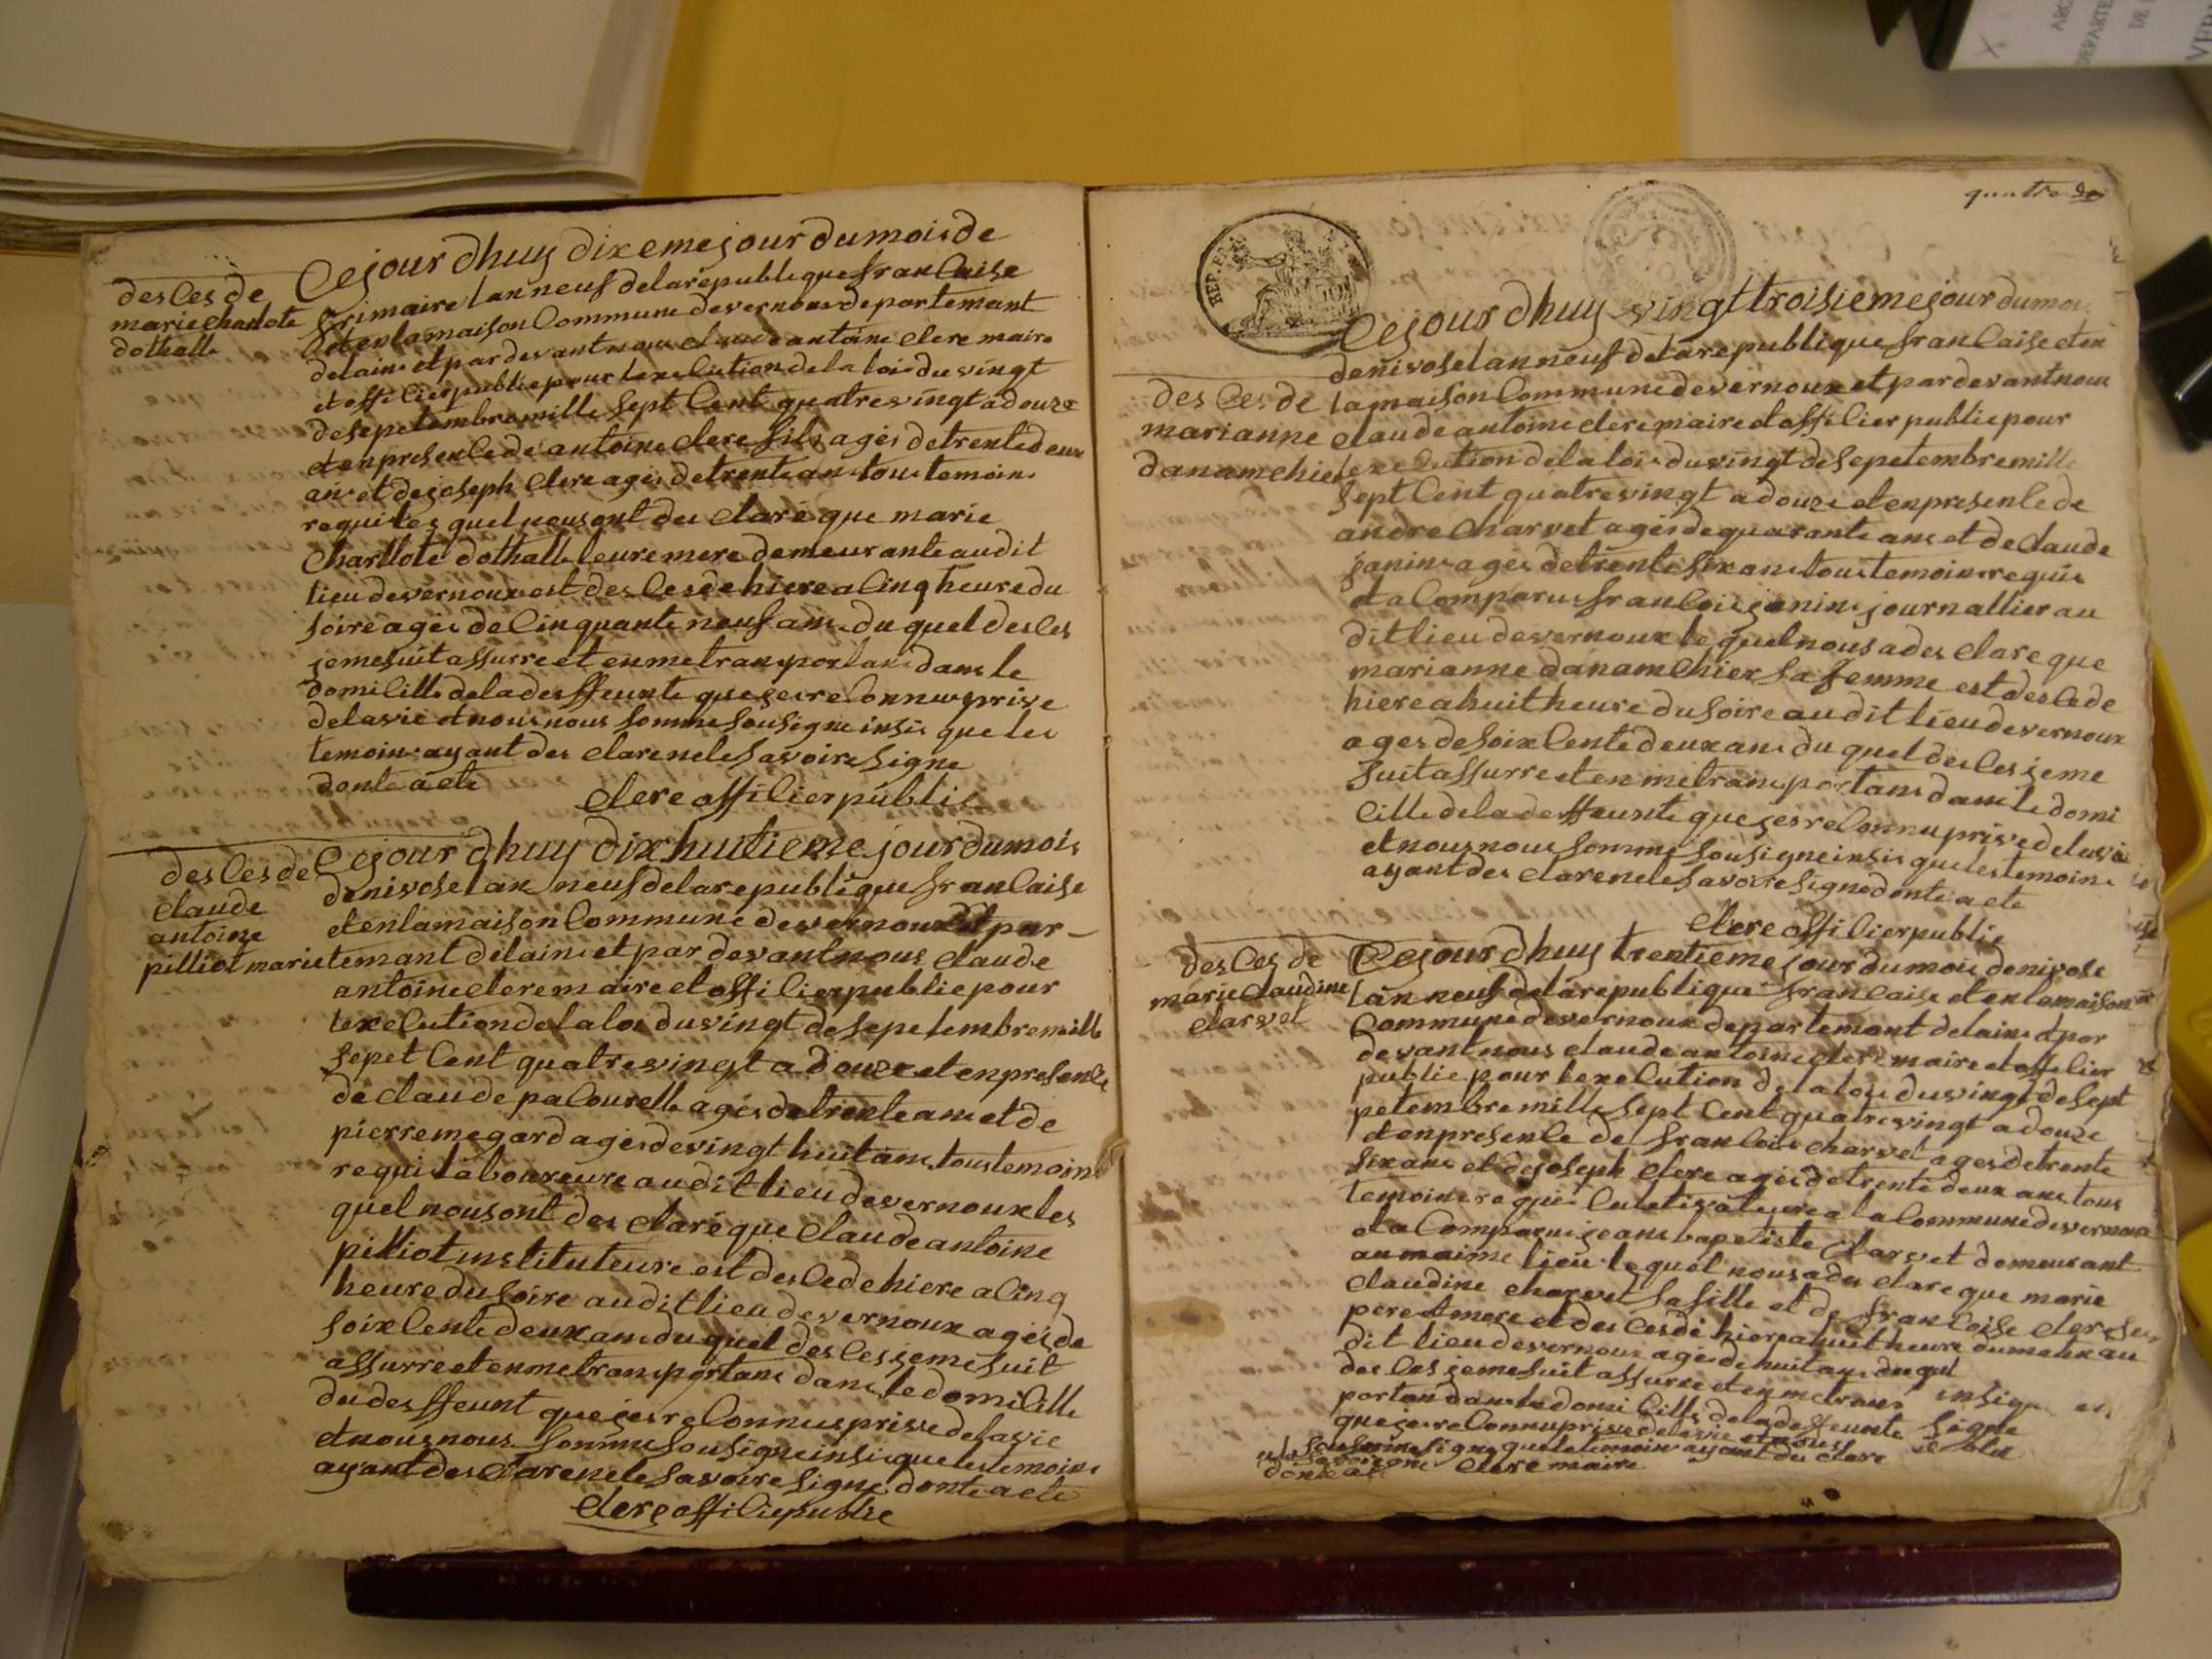 des Ces de
marie charlote
dothalle
Cejour dhuy dixeme jour dumois de
frimaire lan neuf delarepublique franCaise
et enlamaison Commune devernoux departemant
delains et pardevant nous claude antoine clerc maire
et offiCier publie pour lexeCution dela loi du vingt
desepetembre mille sept Cent quatrevingt adouze
et enpresenCe de antoine clerc fils ages detrente deux
ans et dejoseph clerc ages detrente ans tous temoins
requi les quel nous ont des claré que marie
Charllote dothalle leure mere demeurante audit
lieu devernoux est des Cesde hiere a Cinq heure du
soire ages de Cinquante neuf ans du quel des Ces
jemesuit assurre et en metransportans dans le
domiCille dela desffeunte que jes reConnus prive
delavie et nous nous somme sousigne insis que les
temoins ayant des clare nele savoire signe
donte acte
clerc offiCier publie
des Ces de
claude
antoine
pilliot marie
Cejour dhuy dix huitieme jour dumois
denivose lan neuf delarepublique franCaise
et enlamaison Commune devernoux depar-
temant delains et par devant nous claude
antoine clerc maire et offiCier publie pour
lexeCution dela loi du vingt de sepetembre mille
sepet Cent quatrevingt a douze et en presenCe
de claude paCourelle ages de trente ans et de
pierre megard ages de vingt huit ans tous temoins
requi laboureure audit lieu devernoux les
quel nous ont des claré que Claude antoine
pilliot instituteure est des Cede hiere a Cinq
heure du soire audit lieu devernoux ages de
soixCente deux ans du quel des Ces jeme suit
assurre et en metransportans dans le domiCille
du desffeunt que jes reConnus prive delavie
et nous nous somme sousigne insis que les temoins
ayant des clare nele savoire signe donte acte
clerc offiCie publie
quatre
REP. FRA
Cejour dhuy vingt troisieme jour dumoi
denivose lan neuf delarepublique franCaise et en
des Ces de
marianne
danamchier
lamaison Commune devernoux et par devant nous
claude antoine clerc maire et offiCier publie pour
lexeCution dela loi du vingt de sepetembre mille
sept Cent quatrevingt a douze et enpresenCe de
andre Charvet ages de quarante ans et de claude
janin ages detrente six ans tous temoins requis
et a Comparus franCois janin journallier au
dit lieu devernoux le quel nous a des clare que
marianne danamChier sa femme est des Cede
hiere a huit heure du soire au dit lieu devernoux
ages de soixCente deux ans du quel des Ces jeme
suit assurre et en metransportans dans le domi
Cille dela desffeunte que jes reConnu prive delavie
et nous nous somme sousigne insis que les temoins
ayant des clare nele savoire signe donte acte
clerc offiCier publie
des Ces de
marie claudine
clarvet
Cejour dhuy trentieme jour du mois denivose
lan neuf delarepublique franCaise et en lamaison
Commune devernoux departemant delains et par
devant nous claude antoine clerc maire et offiCier
publie pour lexeCution dela loi du vingt de sept
petembre mille sept Cent quatrevingt a douze
et enpresenCe de franCois charvet ages detrente
six ans et dejoseph clerc ages detrente deux ans tous
temoins requis Culetivateure a la Commune devernoux
et a Comparus jeans bapetiste clarvet demeurant
au maime lieu le quel nous a des clare que marie
claudine charvet sa fille et de franCoise clerc ses
pere et mere et des Cesde hier a huit heure du matin au
dit lieu devernoux ages de huit ans du quel
des Ces jeme suit assurre et en metrans
portan dans le domiCille dela desffeunte
que jes reConnu prive delavie et nous
sousomme signe que les temoin ayant des clare
nele savoire signe
donte acte
clerc maire